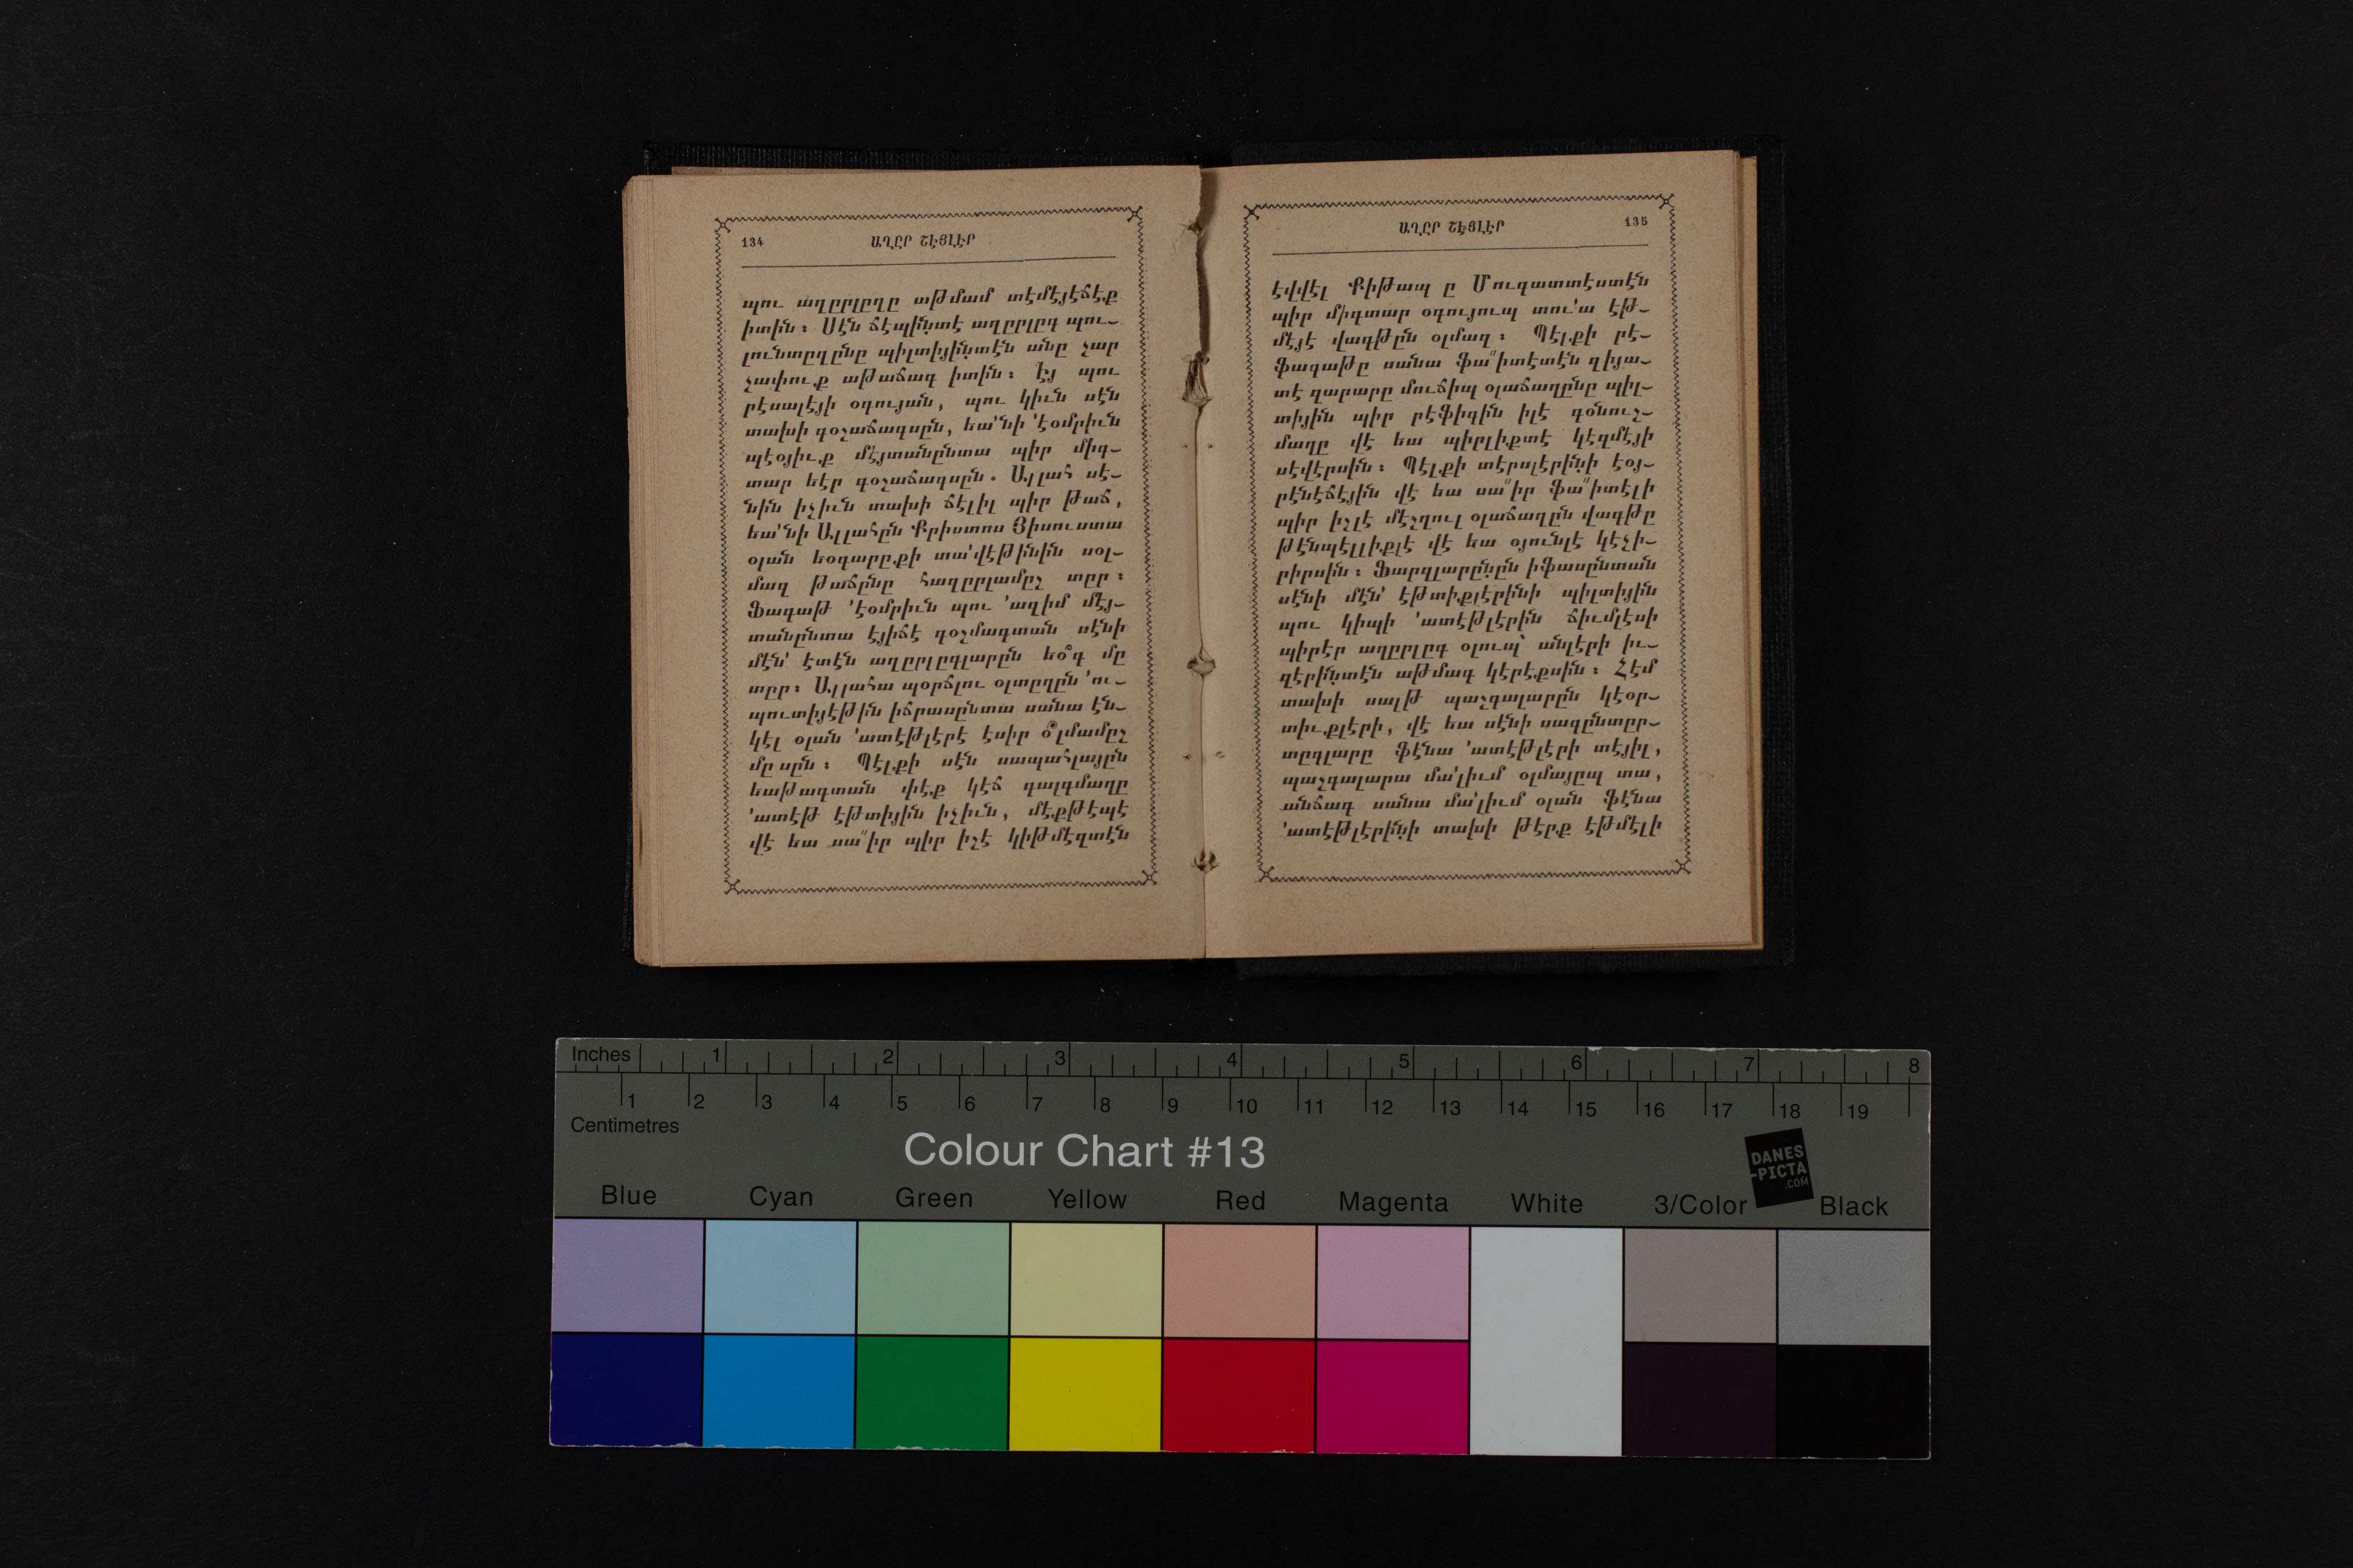 134
ԱՂԸՐ ՇԷՅԼԷՐ
պու աղըրլըղը աթմամ տէմէյէճէք
իտին։ Սէն ճէպին̣տէ աղըրլըգ պու–
լունտըղընը պիլտիյին̣տէն անը չար
չափուք աթաճագ իտին։ Էյ պու
րէսալէյի օգույան, պու կիւն սէն
տախի գօչաճագսըն, եա՛նի ՛էօմրիւն
պէօյիւք մէյտանընտա պիր միգ–
տար եէր գօչաճաղսըն. Ալլահ սէ–
նին իչիւն տախի ճէլիլ պիր թաճ,
եա՛նի Ալլահըն Քրիստոս Յիսուստա
օլան եօգարըքի տա՛վէթինին սօլ–
մազ թաճընը հաղըրլամըշ տըր։
Ֆագաթ ՛էօմրիւն պու ՛ազիմ մէյ–
տանընտա էյիճէ գօշմագտան սէնի
մէն՛ էտէն աղըրլըգլարըն եօ՞գ մը
տըր։ Ալլահա պօրճլու օլտըղըն ՛ու–
պուտիյէթին իճրասընտա սանա էն–
կէլ օլան ՛ատէթլէրէ էսիր օ՞լմամըշ
մը սըն։ Պէլքի սէն սապահլայըն
եաթագտան փէք կէճ գալգմաղը
՛ատէթ էթտիյին իչիւն, մէքթէպէ
վէ եա սա՛՛իր պիր իշէ կիթմէզտէն
135
ԱՂԸՐ ՇԷՅԼԷՐ
էվվէլ Քիթապ ը Մուգատտէստէն
պիր միգտար օգույուպ տու՛ա էթ–
մէյէ վագթըն օլմազ։ Պէլքի րէ–
ֆագաթը սանա ֆա՛՛իտէտէն զիյա–
տէ զարարը մուճիպ օլաճաղընը պիլ–
տիյին պիր րէֆիգին իլէ գօնուշ–
մաղը վէ եա պիրլիքտէ կէզմէյի
սէվէրսին։ Պէլքի տէրսլէրին̣ի էօյ–
րէնէճէյին վէ եա սա՛՛իր ֆա՛՛իտէլի
պիր իշլէ մէշղուլ օլաճաղըն վագթը
թէնպէլլիքլէ վէ եա օյունլէ կէչի–
րիրսին։ Ֆարզլարըն̣ըն իֆասընտան
սէնի մէն՛ էթտիքլէրինի պիլտիյին
պու կիպի ՛ատէթլէրին ճիւմլէսի
պիրէր աղըրլըգ օլուպ՝ անլէրի իւ–
զէրին̣տէն աթմագ կէրէքսին։ Հէմ
տախի սալթ պաշգալարըն կէօր–
տիւքլէրի, վէ եա սէնի սագընտըր–
տըղլարը ֆէնա ՛ատէթլէրի տէյիլ,
պաշգալարա մա՛լիւմ օլմայըպ տա,
անճագ սանա մա՛լիւմ օլան ֆէնա
՛ատէթլէրին̣ի տախի թէրք էթմէլի
Inches 1 2 3 4 5 6 7 8
1 2 3 4 5 6 7 8 9 10 11 12 13 14 15 16 17 18 19
Centimetres
Colour Chart #13
DANES
-PICTA
.COM
Blue Cyan Green Yellow Red Magenta White 3/Color Black